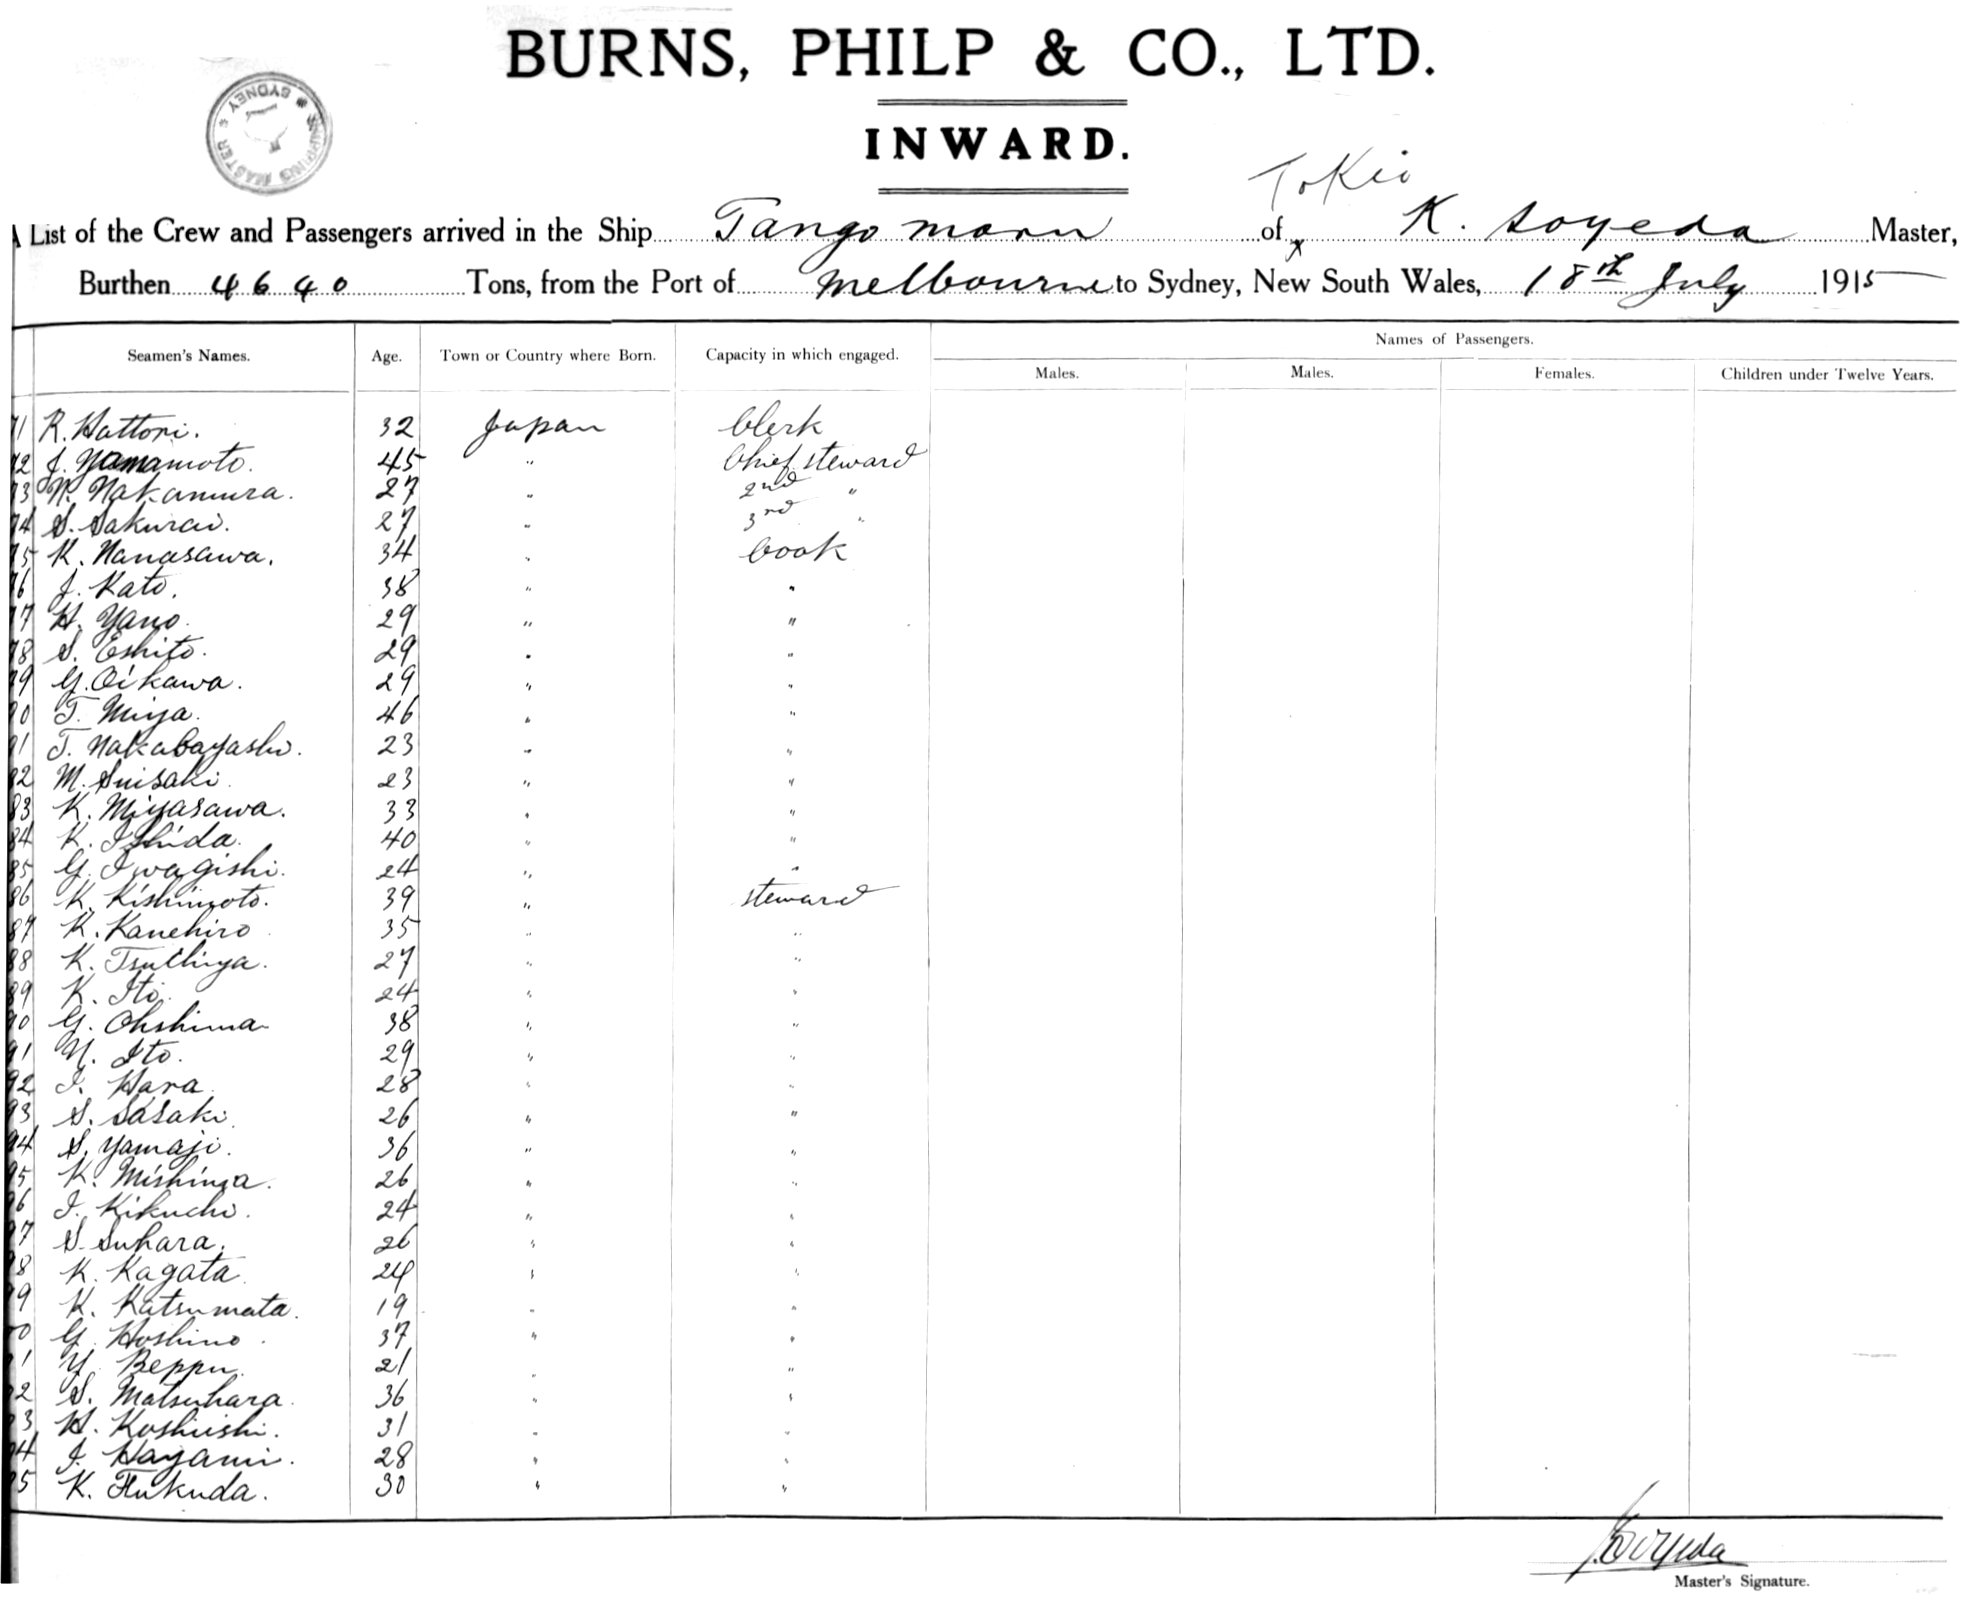 BURNS, PHILP & CO., LTD.
SHIPPING MASTER * SYDNEY *
INWARD.
Tokio
List of the Crew and Passengers arrived in the Ship Tango maru of K. Soyeda Master,
Burthen 4640 Tons, from the Port of Melbourne to Sydney, New South Wales, 18th July 1915
Seamen's Names. Age. Town or Country where Born. Capacity in which engaged. Names of Passengers.
Males. Males. Females. Children under Twelve Years.
71 R. Hattori. 32 Japan Clerk
72 J. Yamamoto. 45 " Chief steward
73 N. Nakamura. 27 " 2nd "
74 S. Sakurai. 27 " 3rd "
75 K. Nanasawa. 34 " Cook
76 J. Kato. 38 " "
77 H. Yano. 29 " "
78 S. Eshito. 29 " "
79 G. Oikawa. 29 " "
80 T. Miya. 46 " "
81 T. Nakabayashi. 23 " "
82 M. Suisaki. 23 " "
83 K. Miyasawa. 33 " "
84 K. Ishida. 40 " "
85 G. Iwagishi. 24 " "
86 K. Kishimoto. 39 " steward
87 K. Kanehiro 35 " "
88 K. Tsuchiya. 27 " "
89 K. Ito. 24 " "
90 G. Ohshima 38 " "
91 N. Ito. 29 " "
92 I. Hara 28 " "
93 S. Sasaki. 26 " "
94 S. Yamaji. 36 " "
95 K. Mishima. 26 " "
96 I. Kikuchi. 24 " "
97 S. Suhara. 26 " "
98 K. Kagata 24 " "
99 K. Katsumata. 19 " "
0 G. Hoshino. 37 " "
1 Y. Beppu. 21 " "
2 S. Matsuhara. 36 " "
3 H. Koshiishi. 31 " "
4 I. Hayami. 28 " "
5 K. Fukuda. 30 " "
K. Soyeda
Master's Signature.